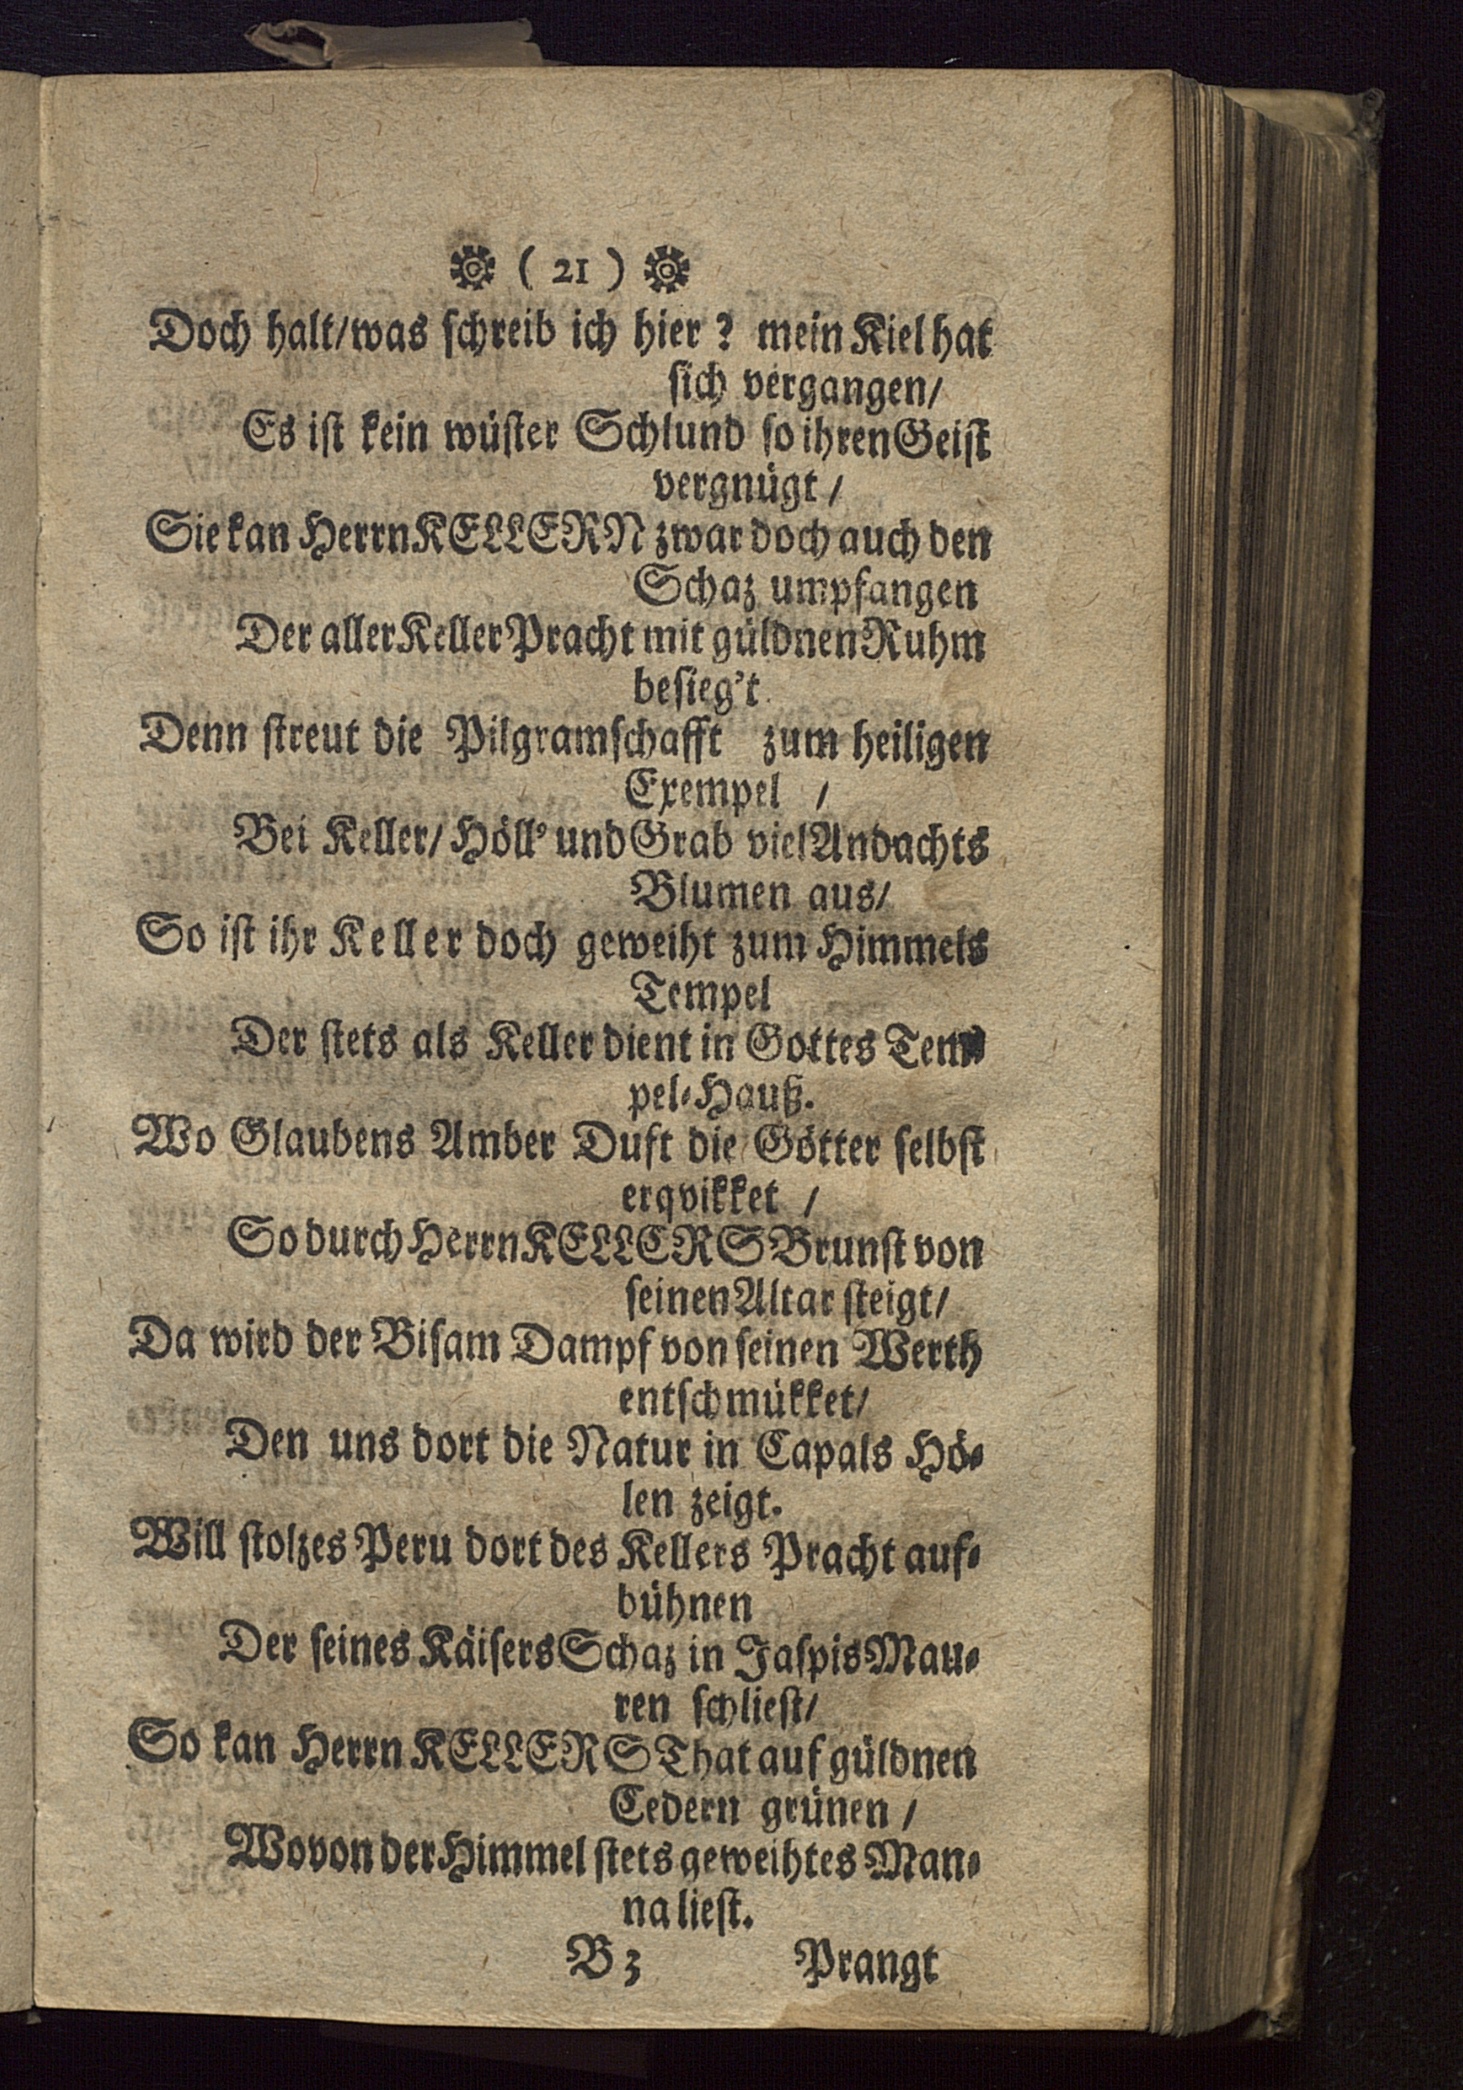 ( 21 )
Doch halt/was schreib ich hier ? mein Kiel hat
sich vergangen/
Es ist kein wüster Schlund so ihren Geist
vergnügt /
Sie kan Herrn KELLERN zwar doch auch den
Schaz umpfangen
Der aller Keller Pracht mit güldnen Ruhm
besieg't
Denn streut die Pilgramschafft zum heiligen
Exempel /
Bei Keller/ Höll' und Grab viel Andachts
Blumen aus/
So ist ihr Keller doch geweiht zum Himmels
Tempel
Der stets als Keller dient in Gottes Tem⸗
pel⸗Hauß.
Wo Glaubens Amber Duft die Götter selbst
erqvikket /
So durch Herrn KELLERS Brunst von
seinen Altar steigt/
Da wird der Bisam Dampf von seinen Werth
entschmükket/
Den uns dort die Natur in Capals Hö⸗
len zeigt.
Will stolzes Peru dort des Kellers Pracht auf⸗
bühnen
Der seines Käisers Schaz in Jaspis Mau⸗
ren schliest/
So kan Herrn KELLERS That auf güldnen
Cedern grünen /
Wovon der Himmel stets geweihtes Man⸗
na liest.
B 3 Prangt